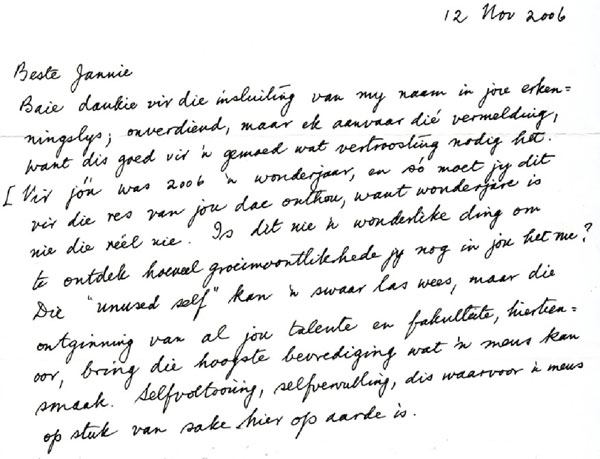 12 Nov 2006
Beste Jannie
Baie dankie vir die insluiting van my naam in jou erken=
ningslys; onverdiend, maar ek aanvaar dié vermelding,
want dis goed vir 'n gemoed wat vertroosting nodig het.
[ Vir jóú was 2006 'n wonderjaar, en só moet jy dit
vir die res van jou dae onthou, want wonderjare is
nie die reël nie. Is dit nie 'n wonderlike ding om
te ontdek hoeveel groeimoontlikhede jy nog in jou het nie?
Die "unused self" kan 'n swaar las wees, maar die
ontginning van al jou talente en fakulteite, hierteen=
oor, bring die hoogste bevrediging wat 'n mens kan
smaak. Selfvoltooiing, selfvervulling, dis waarvoor 'n mens
op stuk van sake hier op aarde is.